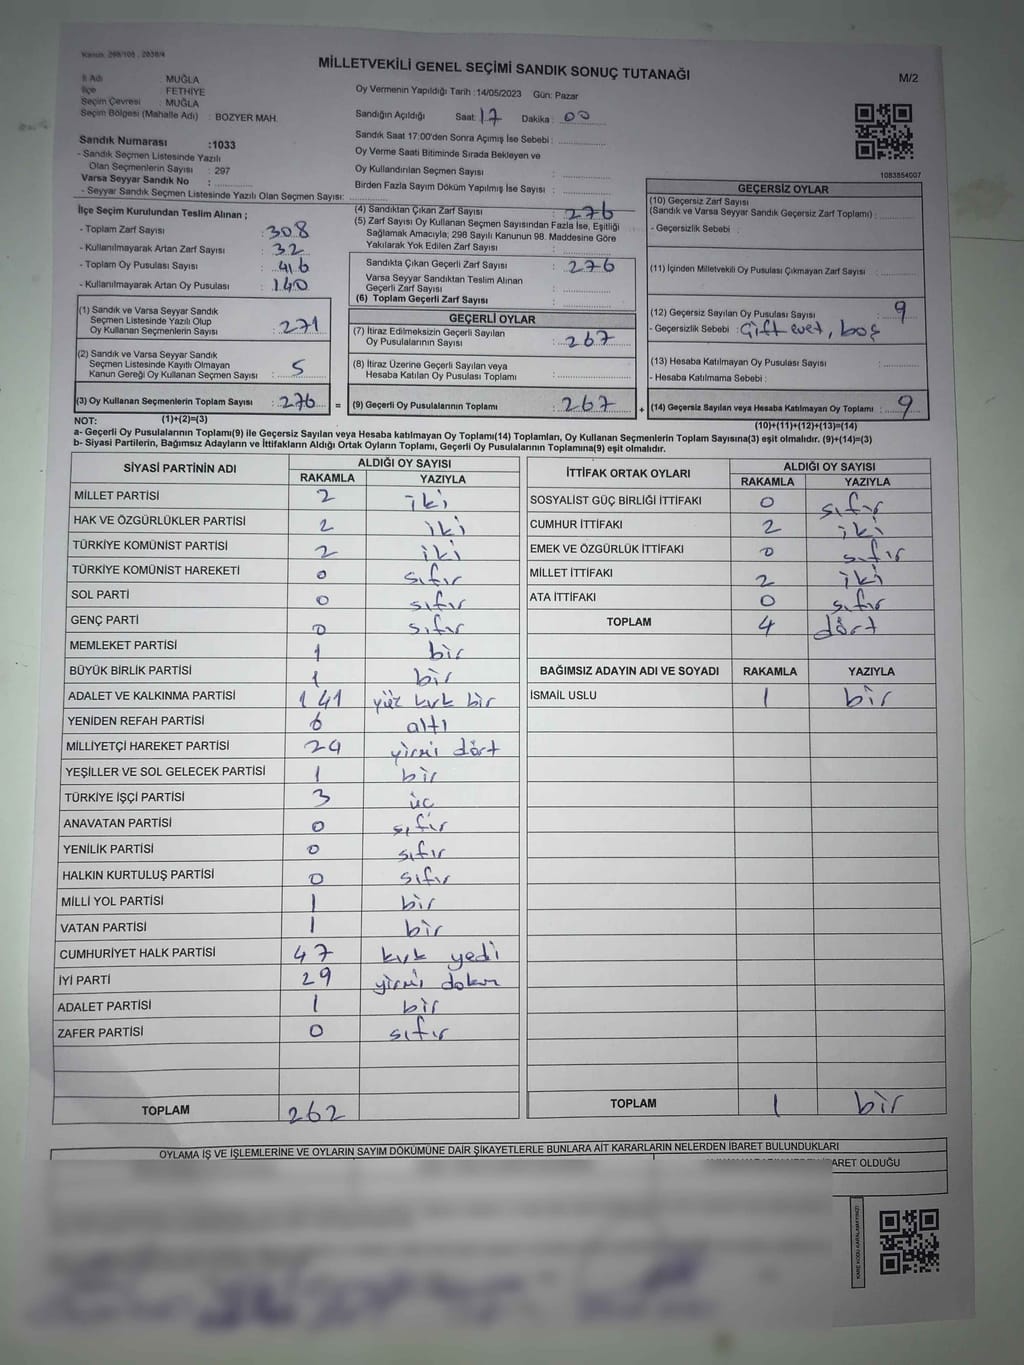 MİLLETVEKİLİ GENEL SEÇİMİ SANDIK SONUÇ TUTANAĞI
M/2
İl Adı : MUĞLA
İlçe : FETHİYE
Seçim Çevresi : MUĞLA
Seçim Bölgesi (Mahalle Adı) : BOZYER MAH.
Sandık Numarası :1033
- Sandık Seçmen Listesinde Yazılı
Olan Seçmenlerin Sayısı : 297
Varsa Seyyar Sandık No :
- Seyyar Sandık Seçmen Listesinde Yazılı Olan Seçmen Sayısı:
Oy Vermenin Yapıldığı Tarih :14/05/2023 Gün: Pazar
Sandığın Açıldığı Saat: 17 Dakika : 00
Sandık Saat 17:00'den Sonra Açımış İse Sebebi :
Oy Verme Saati Bitiminde Sırada Bekleyen ve
Oy Kullandırılan Seçmen Sayısı :
Birden Fazla Sayım Döküm Yapılmış İse Sayısı :
1083854007
İlçe Seçim Kurulundan Teslim Alınan ;
- Toplam Zarf Sayısı : 308
- Kullanılmayarak Artan Zarf Sayısı : 32
- Toplam Oy Pusulası Sayısı : 416
- Kullanılmayarak Artan Oy Pusulası : 140
(1) Sandık ve Varsa Seyyar Sandık
Seçmen Listesinde Yazılı Olup
Oy Kullanan Seçmenlerin Sayısı : 271
(2) Sandık ve Varsa Seyyar Sandık
Seçmen Listesinde Kayıtlı Olmayan
Kanun Gereği Oy Kullanan Seçmen Sayısı : 5
(3) Oy Kullanan Seçmenlerin Toplam Sayısı : 276 =
(4) Sandıktan Çıkan Zarf Sayısı : 276
(5) Zarf Sayısı Oy Kullanan Seçmen Sayısından Fazla İse, Eşitliği
Sağlamak Amacıyla; 298 Sayılı Kanunun 98. Maddesine Göre
Yakılarak Yok Edilen Zarf Sayısı :
Sandıkta Çıkan Geçerli Zarf Sayısı : 276
Varsa Seyyar Sandıktan Teslim Alınan
Geçerli Zarf Sayısı :
(6) Toplam Geçerli Zarf Sayısı :
GEÇERLİ OYLAR
(7) İtiraz Edilmeksizin Geçerli Sayılan
Oy Pusulalarının Sayısı : 267
(8) İtiraz Üzerine Geçerli Sayılan veya
Hesaba Katılan Oy Pusulası Toplamı :
(9) Geçerli Oy Pusulalarının Toplamı : 267 +
GEÇERSİZ OYLAR
(10) Geçersiz Zarf Sayısı
(Sandık ve Varsa Seyyar Sandık Geçersiz Zarf Toplamı) :
- Geçersizlik Sebebi :
(11) İçinden Milletvekili Oy Pusulası Çıkmayan Zarf Sayısı :
(12) Geçersiz Sayılan Oy Pusulası Sayısı : 9
- Geçersizlik Sebebi : Çift evet, boş
(13) Hesaba Katılmayan Oy Pusulası Sayısı :
- Hesaba Katılmama Sebebi :
(14) Geçersiz Sayılan veya Hesaba Katılmayan Oy Toplamı : 9
NOT: (1)+(2)=(3)
(10)+(11)+(12)+(13)=(14)
a- Geçerli Oy Pusulalarının Toplamı(9) ile Geçersiz Sayılan veya Hesaba katılmayan Oy Toplamı(14) Toplamları, Oy Kullanan Seçmenlerin Toplam Sayısına(3) eşit olmalıdır. (9)+(14)=(3)
b- Siyasi Partilerin, Bağımsız Adayların ve İttifakların Aldığı Ortak Oyların Toplamı, Geçerli Oy Pusulalarının Toplamına(9) eşit olmalıdır.
SİYASİ PARTİNİN ADI ALDIĞI OY SAYISI
RAKAMLA YAZIYLA
MİLLET PARTİSİ 2 iki
HAK VE ÖZGÜRLÜKLER PARTİSİ 2 iki
TÜRKİYE KOMÜNİST PARTİSİ 2 iki
TÜRKİYE KOMÜNİST HAREKETİ 0 sıfır
SOL PARTİ 0 sıfır
GENÇ PARTİ 0 sıfır
MEMLEKET PARTİSİ 1 bir
BÜYÜK BİRLİK PARTİSİ 1 bir
ADALET VE KALKINMA PARTİSİ 141 yüz kırk bir
YENİDEN REFAH PARTİSİ 6 altı
MİLLİYETÇİ HAREKET PARTİSİ 24 yirmi dört
YEŞİLLER VE SOL GELECEK PARTİSİ 1 bir
TÜRKİYE İŞÇİ PARTİSİ 3 üç
ANAVATAN PARTİSİ 0 sıfır
YENİLİK PARTİSİ 0 sıfır
HALKIN KURTULUŞ PARTİSİ 0 sıfır
MİLLİ YOL PARTİSİ 1 bir
VATAN PARTİSİ 1 bir
CUMHURİYET HALK PARTİSİ 47 kırk yedi
İYİ PARTİ 29 yirmi dokuz
ADALET PARTİSİ 1 bir
ZAFER PARTİSİ 0 sıfır
TOPLAM 262
İTTİFAK ORTAK OYLARI ALDIĞI OY SAYISI
RAKAMLA YAZIYLA
SOSYALİST GÜÇ BİRLİĞİ İTTİFAKI 0 sıfır
CUMHUR İTTİFAKI 2 iki
EMEK VE ÖZGÜRLÜK İTTİFAKI 0 sıfır
MİLLET İTTİFAKI 2 iki
ATA İTTİFAKI 0 sıfır
TOPLAM 4 dört
BAĞIMSIZ ADAYIN ADI VE SOYADI RAKAMLA YAZIYLA
İSMAİL USLU 1 bir
TOPLAM 1 bir
OYLAMA İŞ VE İŞLEMLERİNE VE OYLARIN SAYIM DÖKÜMÜNE DAİR ŞİKAYETLERLE BUNLARA AİT KARARLARIN NELERDEN İBARET BULUNDUKLARI
OLDUĞU